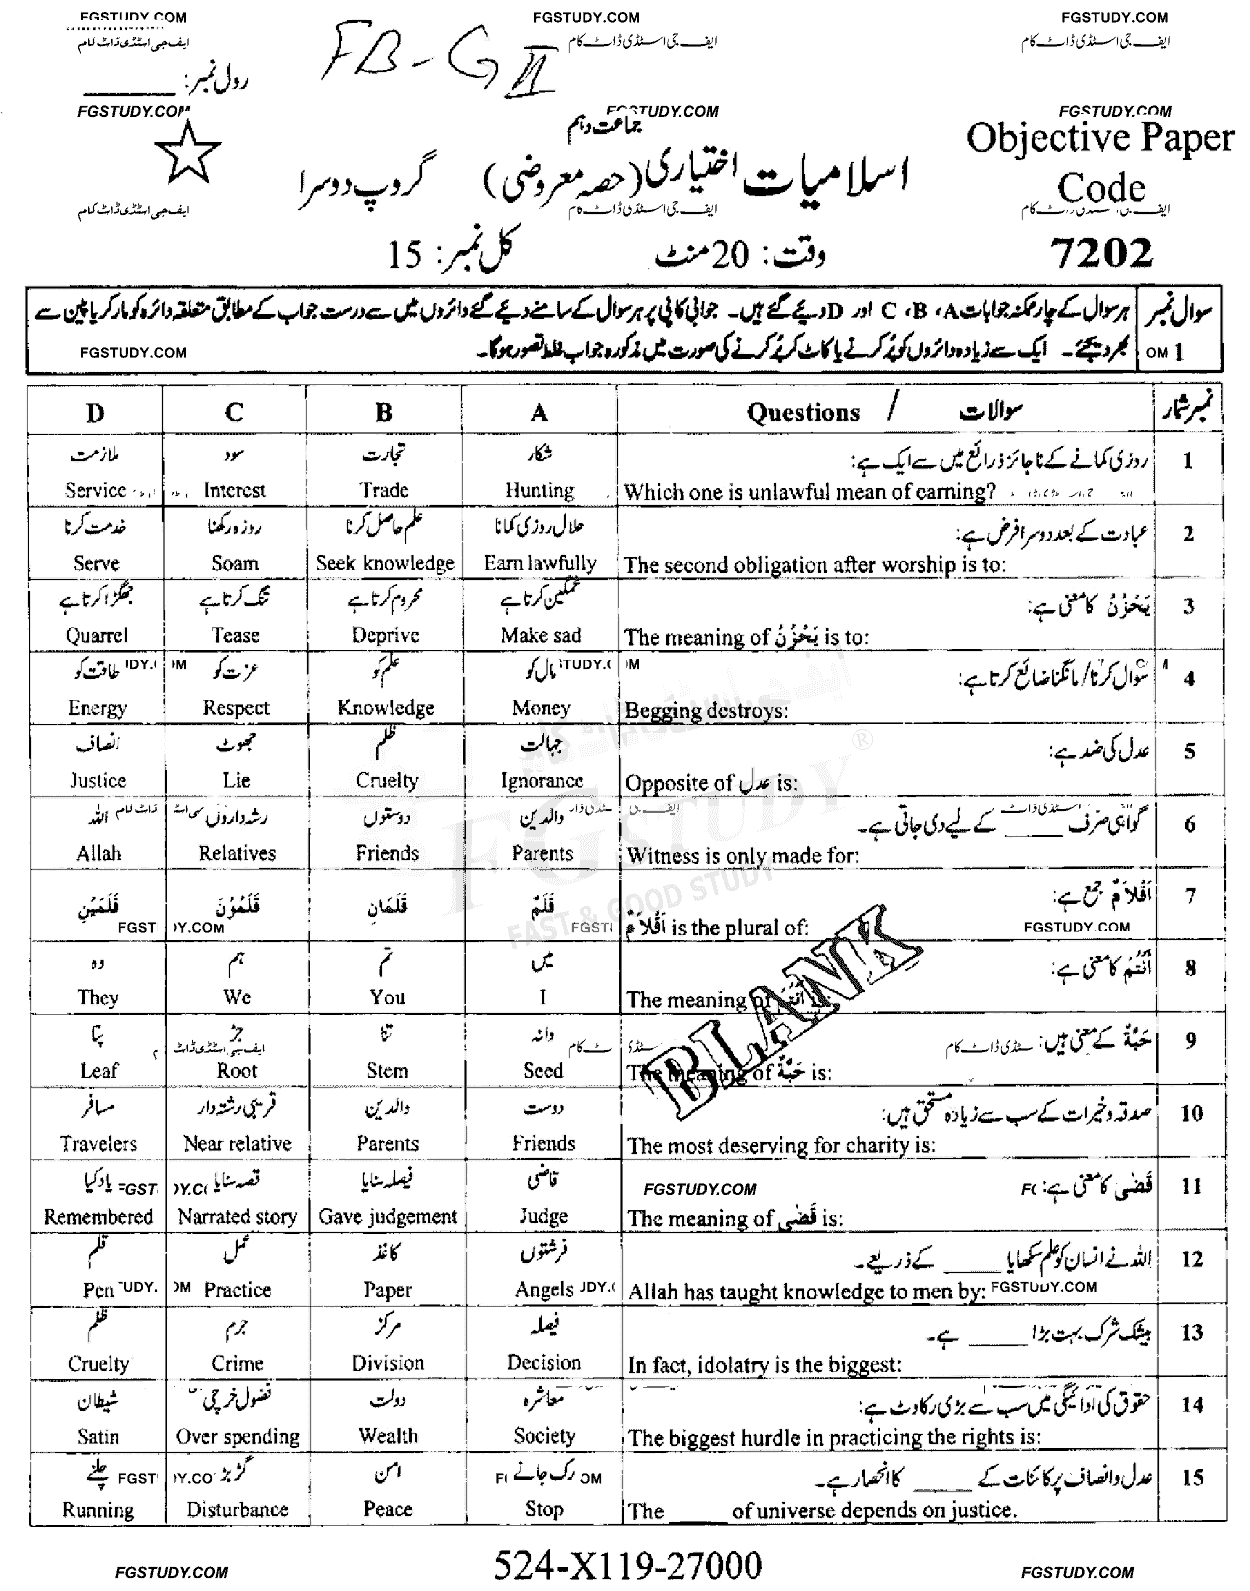 FGSTUDY.COM FGSTUDY.COM FGSTUDY.COM
ایف جی اسٹڈی ڈاٹ کام ایف جی اسٹڈی ڈاٹ کام ایف جی اسٹڈی ڈاٹ کام
FB-G II
رول نمبر: ______
FGSTUDY.COM FGSTUDY.COM FGSTUDY.COM
جماعت دہم
Objective Paper
اسلامیات اختیاری (حصہ معروضی) گروپ دوسرا
Code
ایف جی اسٹڈی ڈاٹ کام ایف جی اسٹڈی ڈاٹ کام
7202
وقت: 20 منٹ کل نمبر: 15
سوال نمبر 1
ہر سوال کے چار ممکنہ جوابات A، B، C اور D دیئے گئے ہیں۔ جوابی کاپی پر ہر سوال کے سامنے دیے گئے دائروں میں سے درست جواب کے مطابق متعلقہ دائرہ کو مارکر یا پین سے
بھر دیجئے۔ ایک سے زیادہ دائروں کو پُر کرنے یا کاٹ کر پُر کرنے کی صورت میں مذکورہ جواب غلط تصور ہوگا۔
FGSTUDY.COM OM
نمبر شمار سوالات / Questions A B C D
1 روزی کمانے کے ناجائز ذرائع میں سے ایک ہے: شکار تجارت سود ملازمت
Which one is unlawful mean of earning? Hunting Trade Interest Service
2 عبادت کے بعد دوسرا فرض ہے: حلال روزی کمانا علم حاصل کرنا روزہ رکھنا خدمت کرنا
The second obligation after worship is to: Earn lawfully Seek knowledge Soam Serve
3 یَحْزُنُ کا معنی ہے: غمگین کرتا ہے محروم کرتا ہے تنگ کرتا ہے جھگڑا کرتا ہے
The meaning of یَحْزُنُ is to: Make sad Deprive Tease Quarrel
4 سوال کرنا/مانگنا ضائع کرتا ہے: مال کو علم کو عزت کو طاقت کو
Begging destroys: Money Knowledge Respect Energy
5 عدل کی ضد ہے: جہالت ظلم جھوٹ انصاف
Opposite of عدل is: Ignorance Cruelty Lie Justice
6 گواہی صرف ____ کے لیے دی جاتی ہے۔ والدین دوستوں رشتہ داروں اللہ
Witness is only made for: Parents Friends Relatives Allah
7 اَقْلَامٌ جمع ہے: قَلَمٌ قَلَمَانِ قَلَمُوْنَ قَلَمَیْنِ
اَقْلَامٌ is the plural of:
FGSTUDY.COM
8 اَنْتُمْ کا معنی ہے: میں تم ہم وہ
The meaning of اَنْتُمْ is: I You We They
BLANK
9 حَبَّةٌ کے معنی ہیں: دانہ تنا جڑ پتا
The meaning of حَبَّةٌ is: Seed Stem Root Leaf
10 صدقہ وخیرات کے سب سے زیادہ مستحق ہیں: دوست والدین قریبی رشتہ دار مسافر
The most deserving for charity is: Friends Parents Near relative Travelers
11 قَضٰی کا معنی ہے: قاضی فیصلہ سنایا قصہ سنایا یاد کیا
FGSTUDY.COM
The meaning of قَضٰی is: Judge Gave judgement Narrated story Remembered
12 اللہ نے انسان کو علم سکھایا ____ کے ذریعے۔ فرشتوں کاغذ عمل قلم
Allah has taught knowledge to men by: Angels Paper Practice Pen
FGSTUDY.COM
13 بیشک شرک بہت بڑا ____ ہے۔ فیصلہ مرکز جرم ظلم
In fact, idolatry is the biggest: Decision Division Crime Cruelty
14 حقوق کی ادائیگی میں سب سے بڑی رکاوٹ ہے: معاشرہ دولت فضول خرچی شیطان
The biggest hurdle in practicing the rights is: Society Wealth Over spending Satin
15 عدل وانصاف پر کائنات کے ____ کا انحصار ہے۔ رک جانے امن گڑبڑ چلنے
The ____ of universe depends on justice. Stop Peace Disturbance Running
FGSTUDY
®
FAST & GOOD STUDY
FGSTUDY.COM 524-X119-27000 FGSTUDY.COM